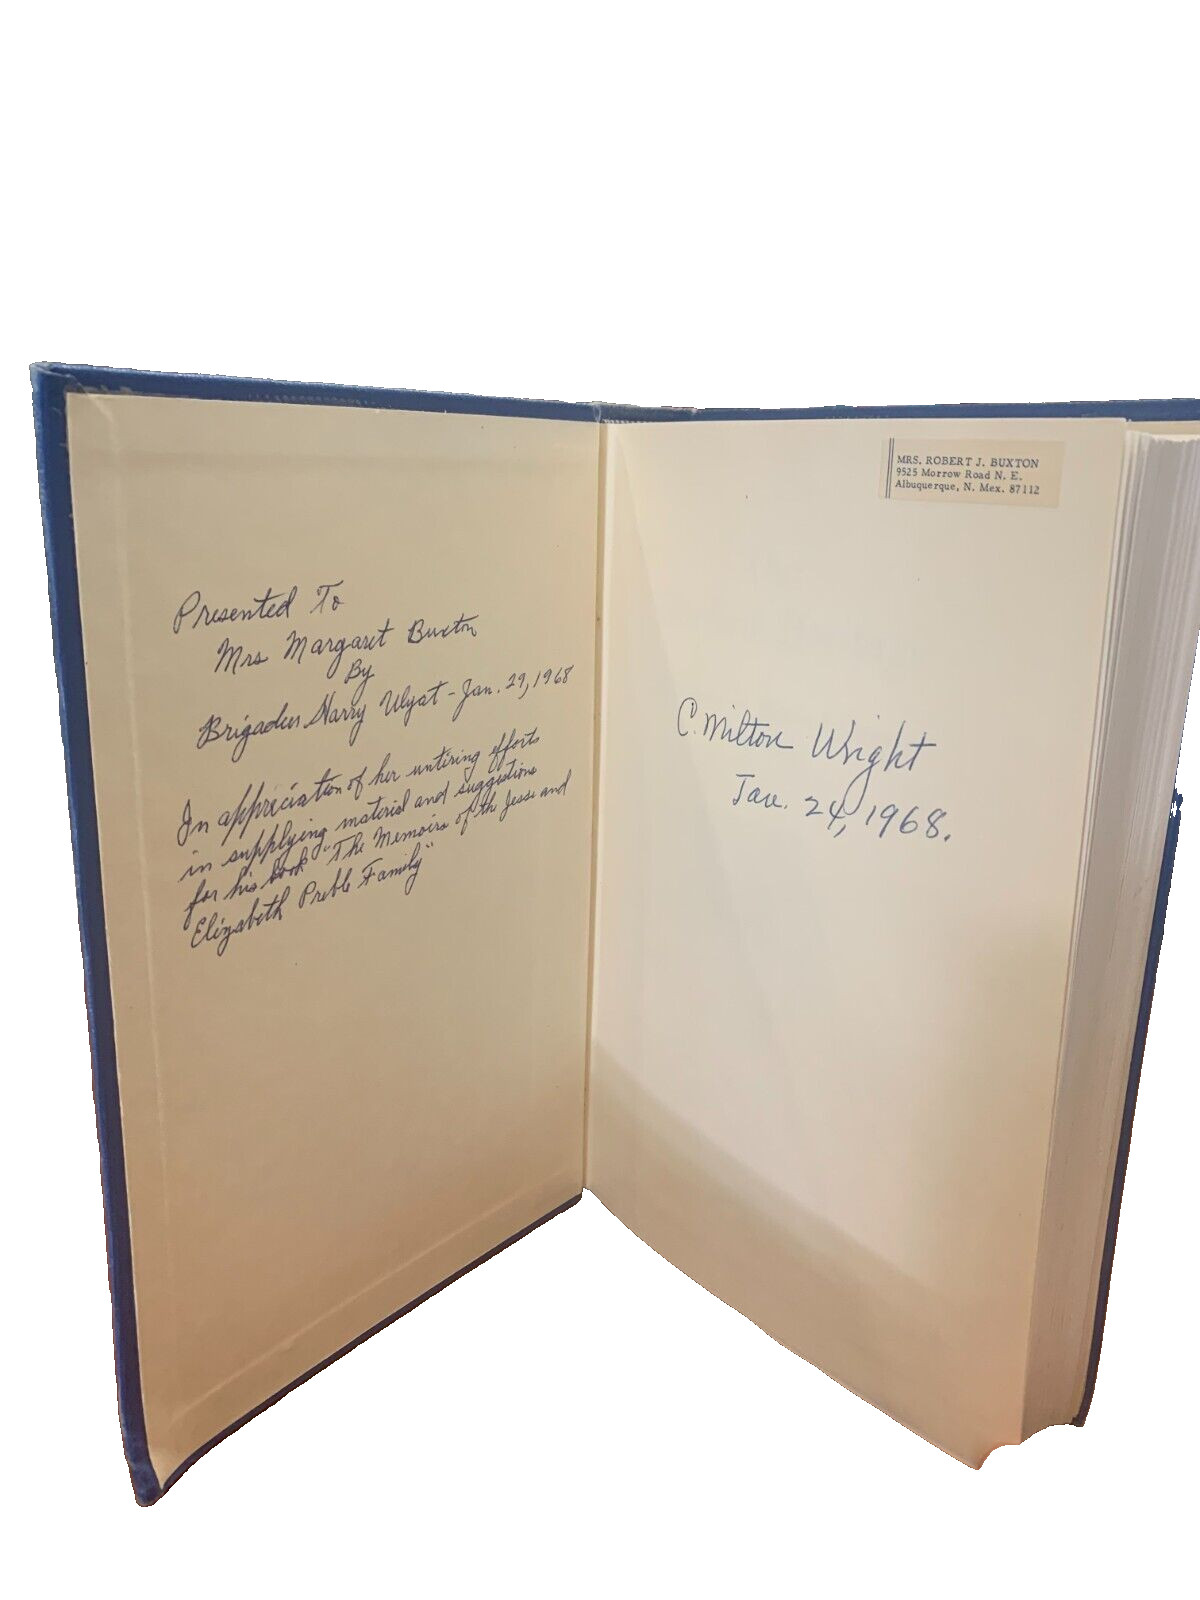 Presented To
Mrs Margaret Buxton
By
Brigadier Harry Wyat - Jan. 29, 1968
In appreciation of her untiring efforts
in supplying material and suggestions
for his book "The Memoirs of th Jesse and
Elizabeth Preble Family"
MRS. ROBERT J. BUXTON
9525 Morrow Road N. E.
Albuquerque, N. Mex. 87112
C. Milton Wright
Jan. 24, 1968.